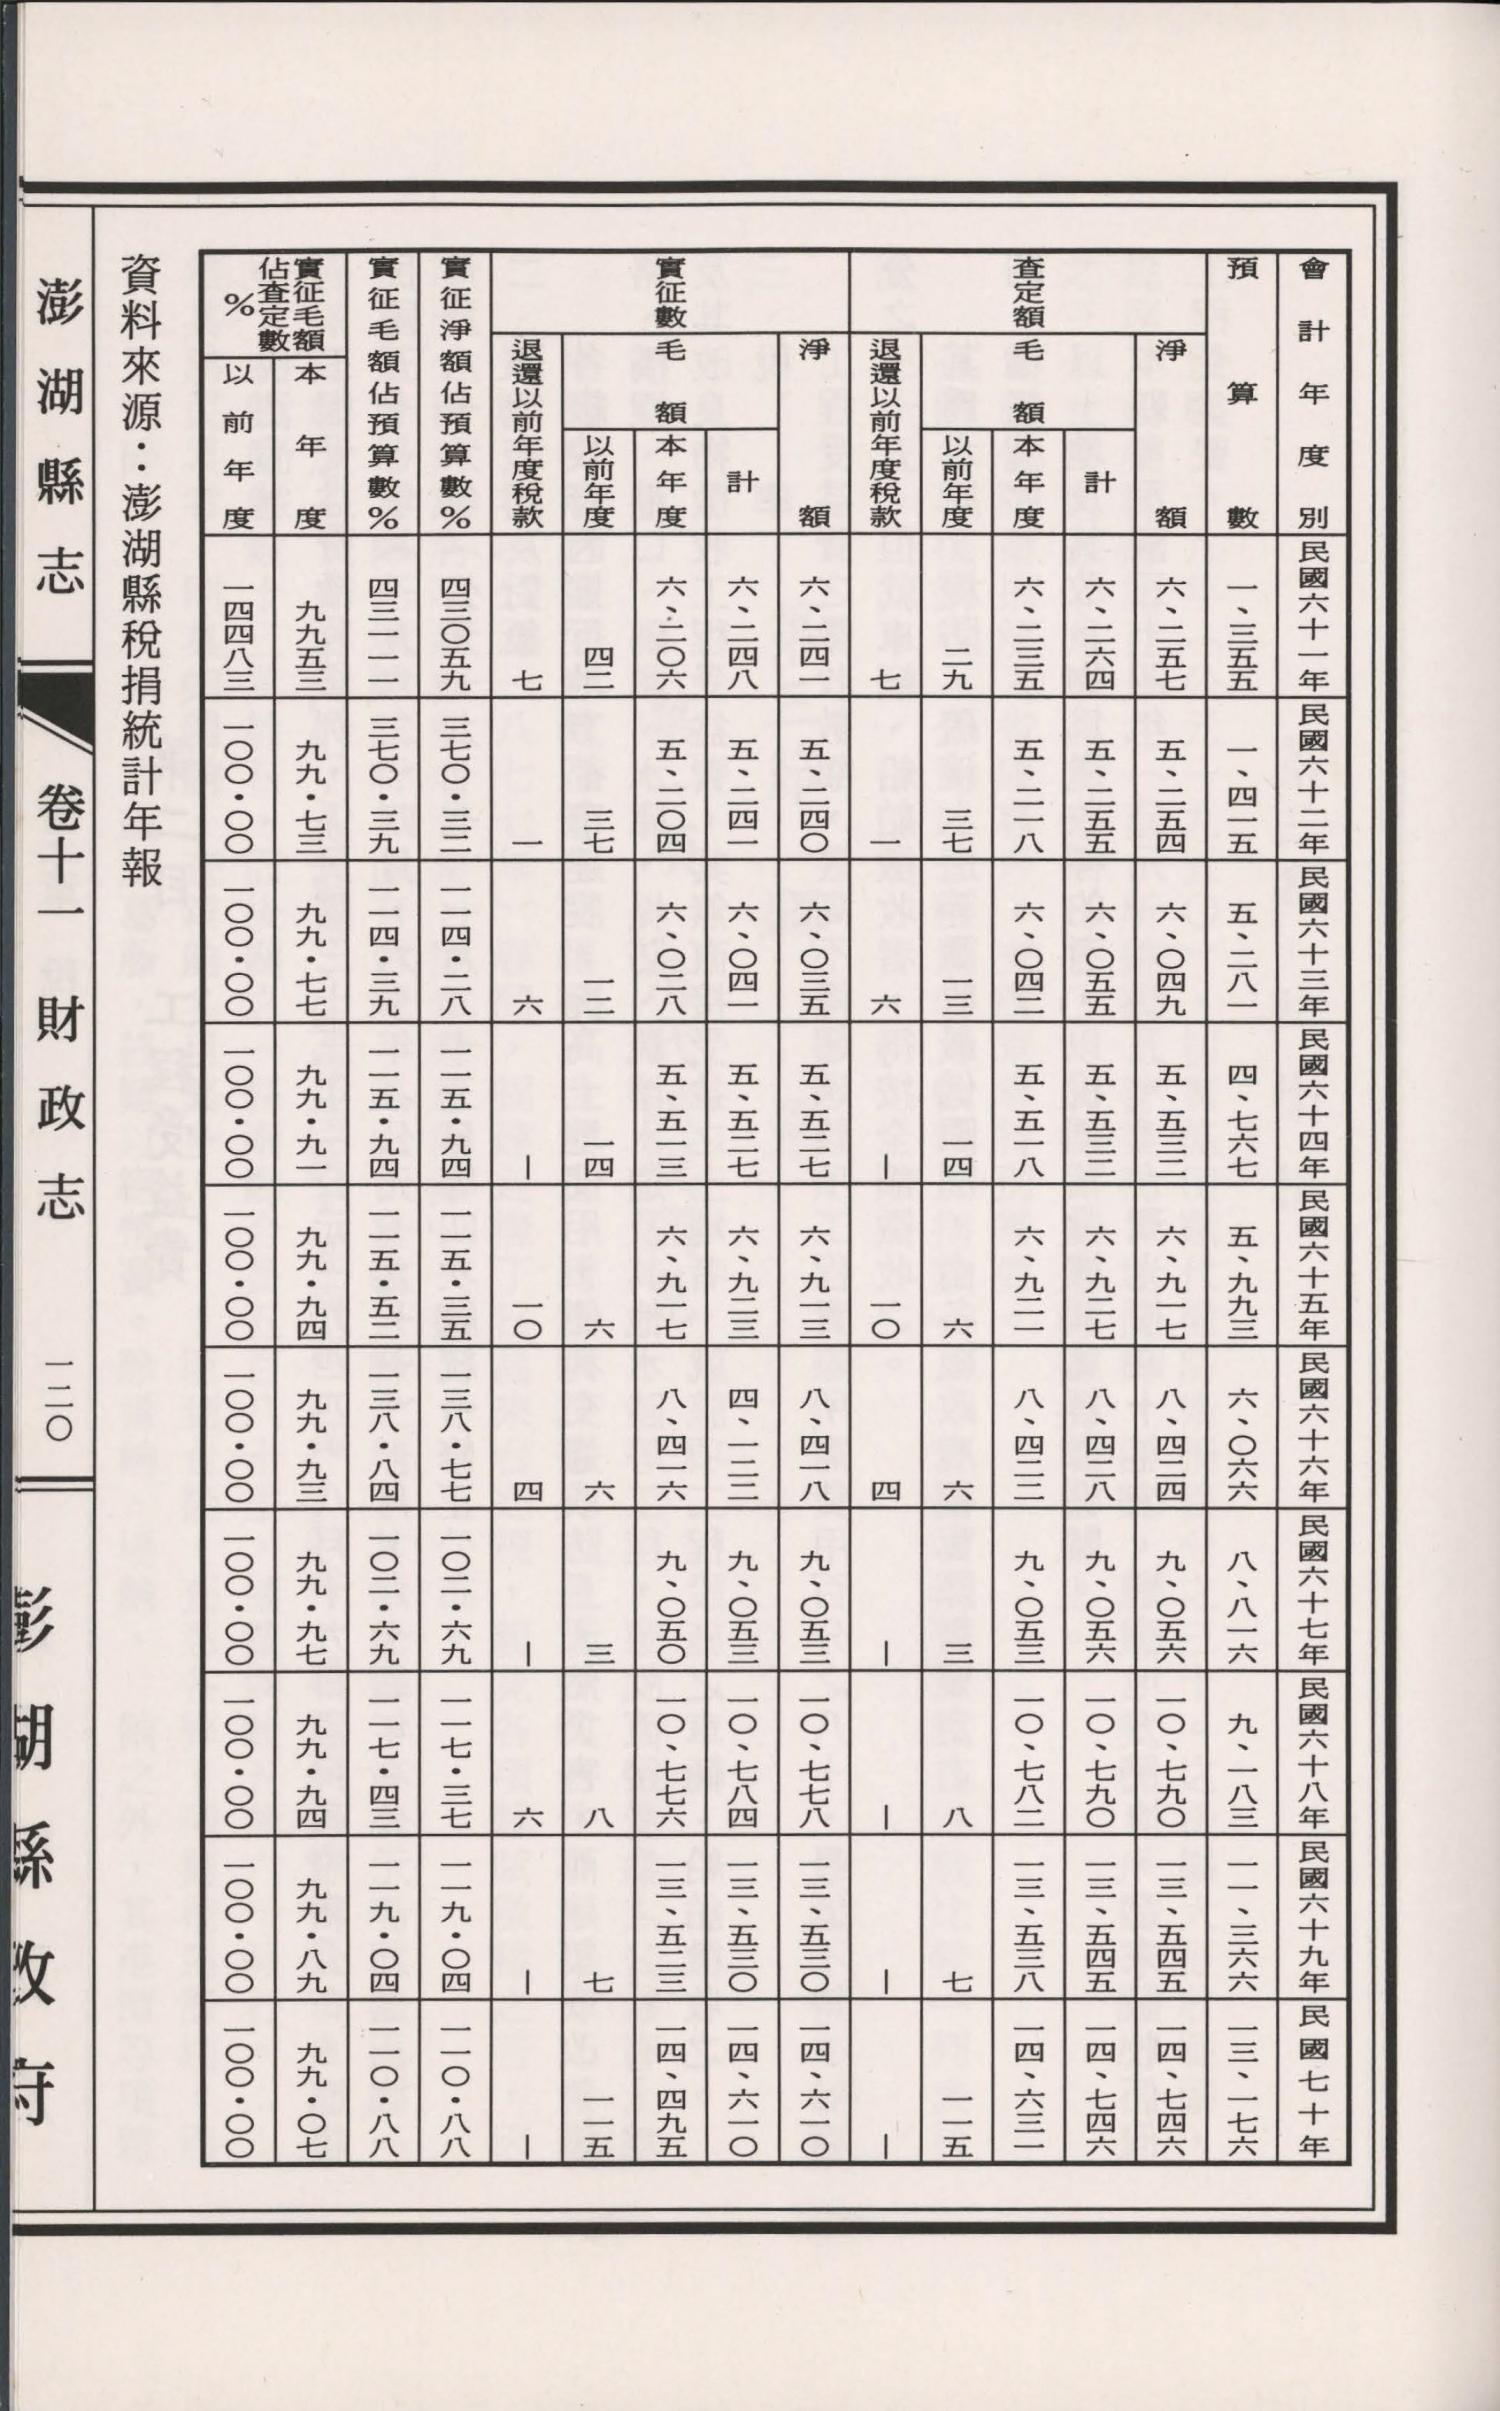 會計年度別 民國六十一年 民國六十二年 民國六十三年 民國六十四年 民國六十五年 民國六十六年 民國六十七年 民國六十八年 民國六十九年 民國七十年
預算數 一、三五五 一、四一五 五、二八一 四、七六七 五、九九三 六、〇六六 八、八一六 九、一八三 一一、三六六 一三、一七六
查定額
淨額 六、二五七 五、二五四 六、〇四九 五、五三二 六、九一七 八、四二四 九、〇五六 一〇、七九〇 一三、五四五 一四、七四六
毛額
計 六、二六四 五、二五五 六、〇五五 五、五三二 六、九二七 八、四二八 九、〇五六 一〇、七九〇 一三、五四五 一四、七四六
本年度 六、二三五 五、二一八 六、〇四二 五、五一八 六、九二一 八、四二二 九、〇五三 一〇、七八二 一三、五三八 一四、六三一
以前年度 二九 三七 一三 一四 六 六 三 八 七 一一五
退還以前年度稅款 七 一 六 — 一〇 四 — — — —
實征數
淨額 六、二四一 五、二四〇 六、〇三五 五、五二七 六、九一三 八、四一八 九、〇五三 一〇、七七八 一三、五三〇 一四、六一〇
毛額
計 六、二四八 五、二四一 六、〇四一 五、五二七 六、九二三 四、一二二 九、〇五三 一〇、七八四 一三、五三〇 一四、六一〇
本年度 六、二〇六 五、二〇四 六、〇二八 五、五一三 六、九一七 八、四一六 九、〇五〇 一〇、七七六 一三、五二三 一四、四九五
以前年度 四二 三七 一二 一四 六 六 三 八 七 一一五
退還以前年度稅款 七 一 六 — 一〇 四 — 六 — —
實征淨額佔預算數% 四三〇五九 三七〇・三二 一一四・二八 一一五・九四 一一五・三五 一三八・七七 一〇二・六九 一一七・三七 一一九・〇四 一一〇・八八
實征毛額佔預算數% 四三一一一 三七〇・三九 一一四・三九 一一五・九四 一一五・五二 一三八・八四 一〇二・六九 一一七・四三 一一九・〇四 一一〇・八八
實征毛額佔查定數%
本年度 九九五三 九九・七三 九九・七七 九九・九一 九九・九四 九九・九三 九九・九七 九九・九四 九九・八九 九九・〇七
以前年度 一四四八三 一〇〇・〇〇 一〇〇・〇〇 一〇〇・〇〇 一〇〇・〇〇 一〇〇・〇〇 一〇〇・〇〇 一〇〇・〇〇 一〇〇・〇〇 一〇〇・〇〇
資料來源：澎湖縣稅捐統計年報
澎湖縣志 卷十一 財政志 一二〇 澎湖縣政府